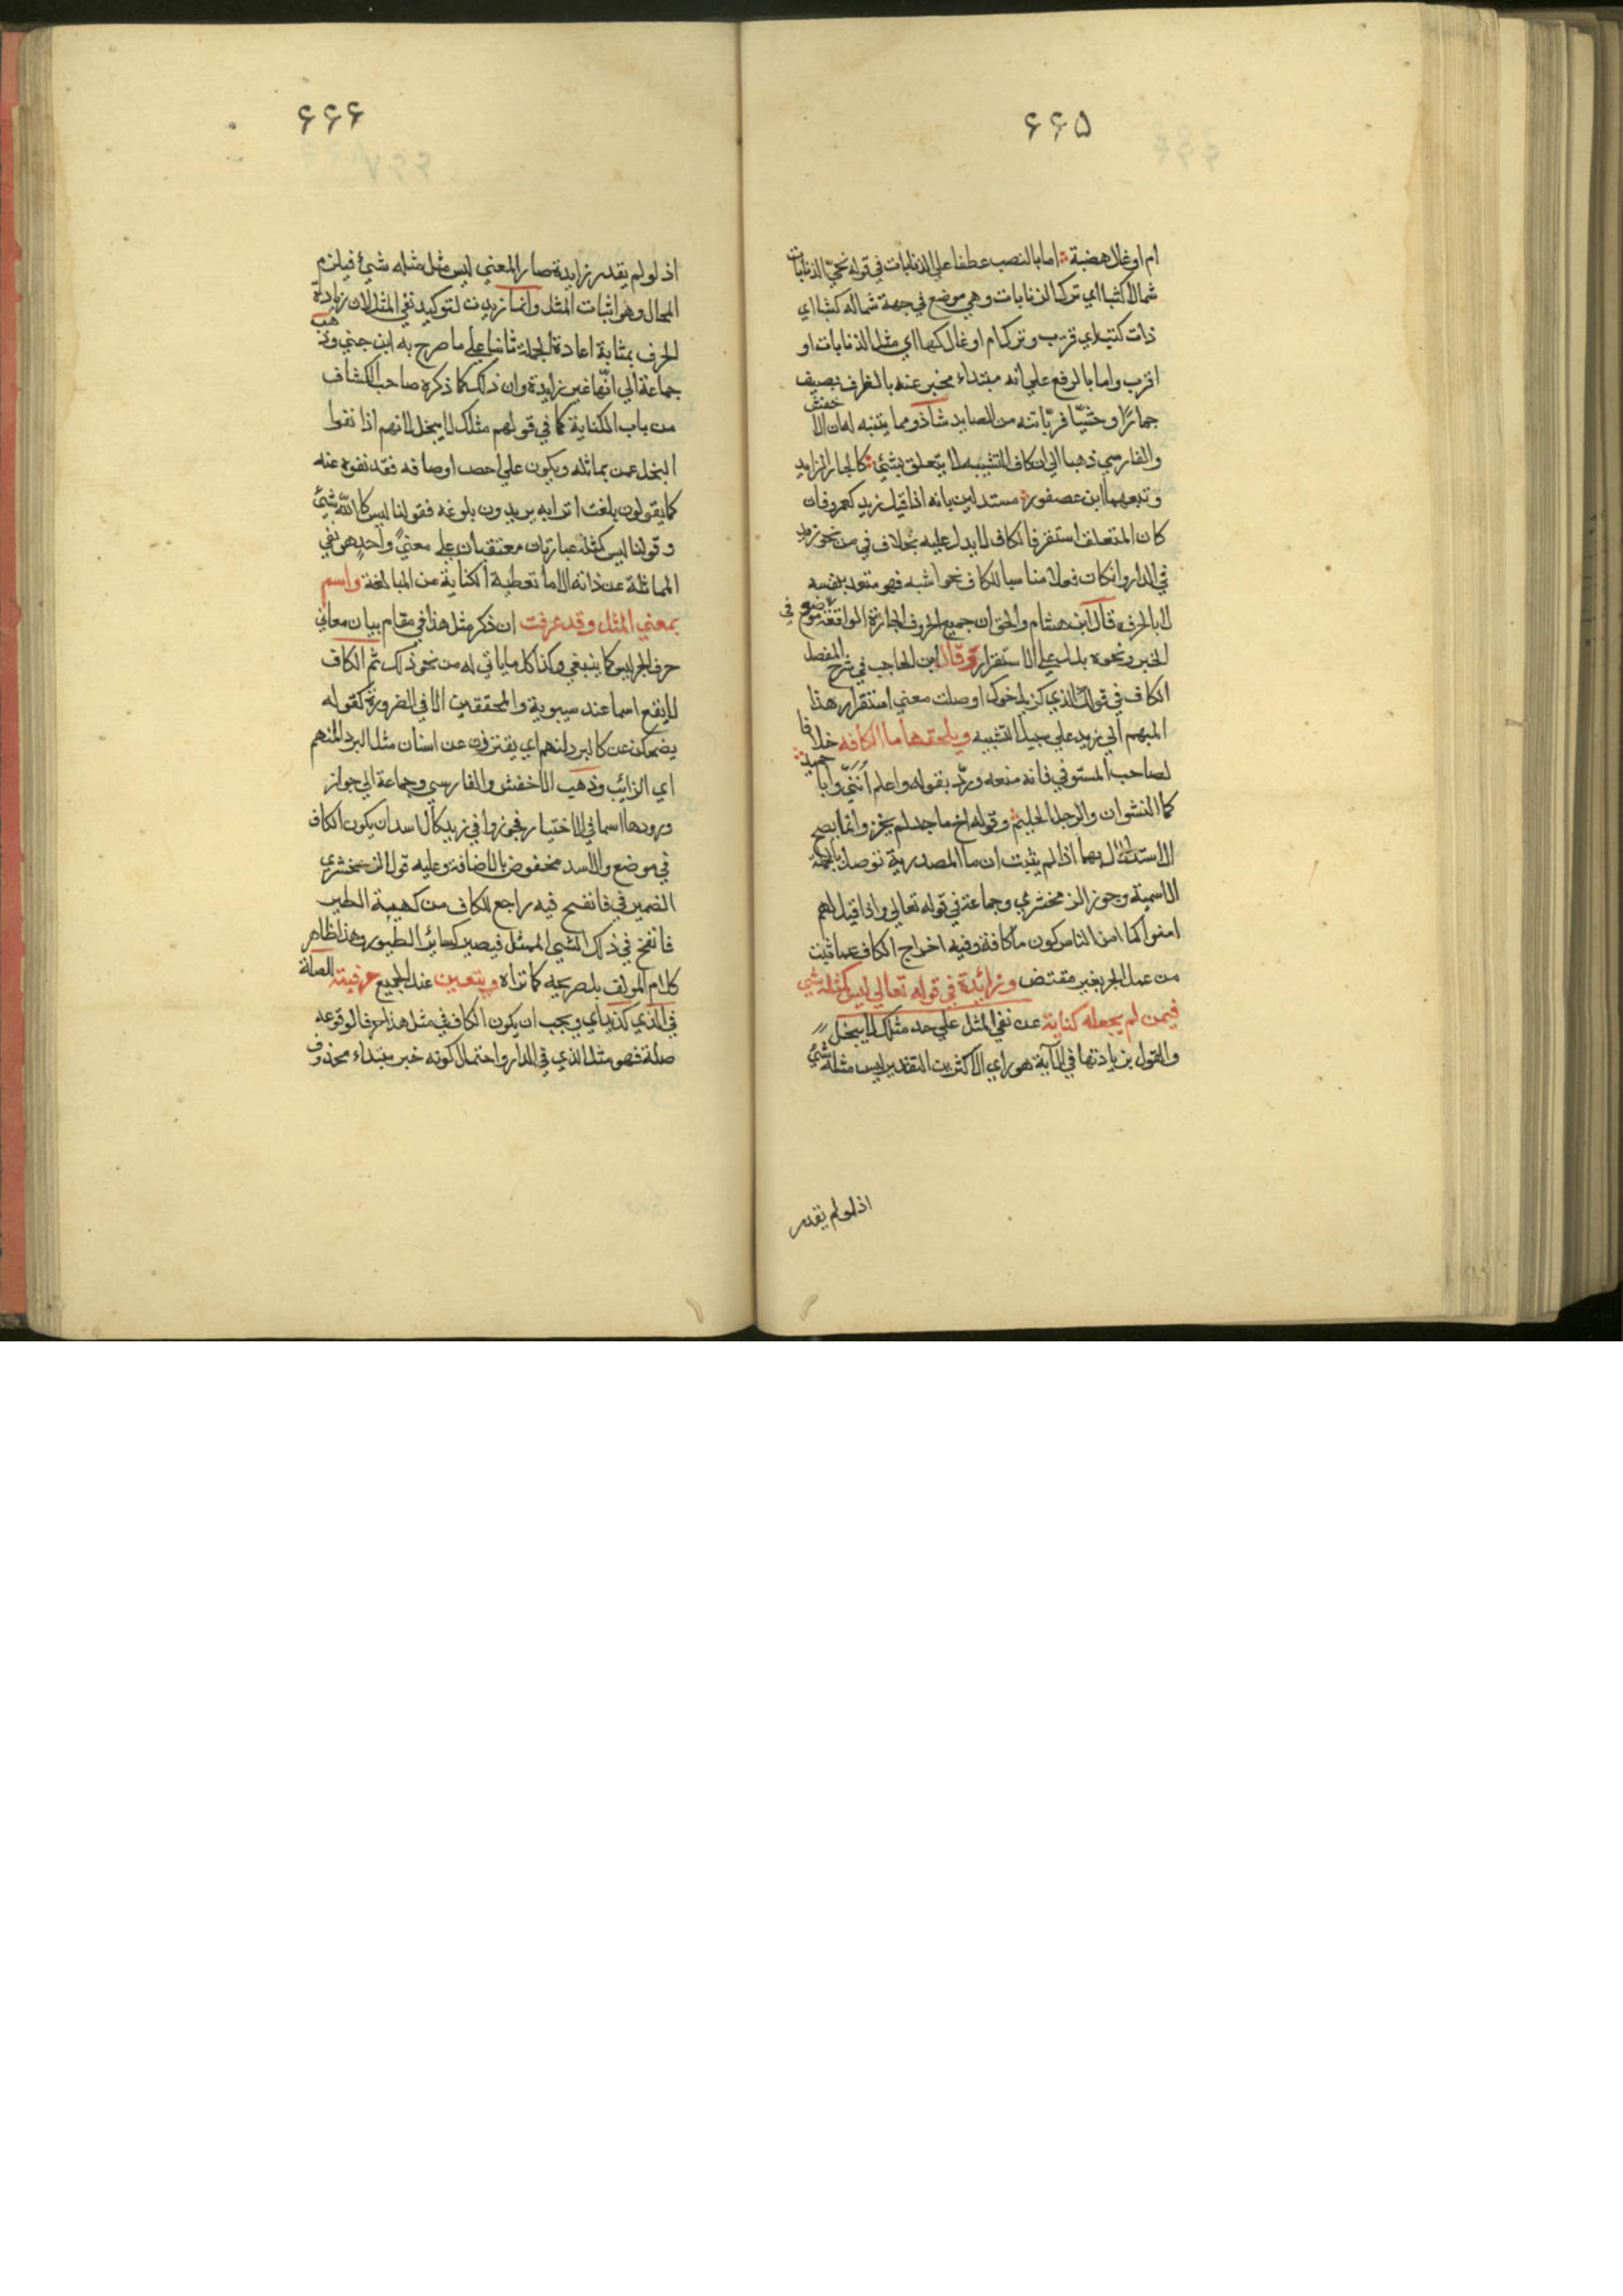 ۶۶۵
ام اوعالا هضبة اما بالنصب عطفا علي الذنابات في قوله نحيّ الذنابات
شمالا كثبا اي ترك الذنابات وهي موضع في جهة شماله كثبا اي
ذات كثيب اي قريب وترك ام اوعال كها اي مثل الذنابات او
اقرب واما بالرفع علي انه مبتداء مخبر عنه بالظرف يصيف
حمارًا وحشيّا فربّاتنه من الصايد شاذ ومما يتنبه له ان الاخفش
والفارسي ذهبا الي ان كاف التشبيه لا يتعلق بشئ كالجار الزايد
وتبعهما ابن عصفور مستدلين بانه اذا قيل زيد كعمرو فان
كان المتعلق استقر فالكاف لا يدل عليه بخلاف في من نحو زيد
في الدار وان كان فعلا مناسبا للكاف نحو اشبه فهو متعد بنفسه
لا بالحرف قال ابن هشام والحق ان جميع الحروف الجارة الواقعة في موضع
الخبر ونحوه يدل علي الاستقرار وقال ابن الحاجب في شرح المفصل
الكاف في قولك الذي كزيد اخوك اوصلت معني استقرار هذا
المبهم الي زيد علي سبيل التشبيه ويلحقها ما الكافه خلافا
لصاحب المستوفي فانه منعه وردّ بقوله واعلم انني وابا حميد
كما النشوان والرجل الحليم وقوله اخ ماجد لم يخز وانما يصح
الاستدلال بهما اذا لم يثبت ان ما المصدرية توصل بالجملة
الاسمية وجوز الزمخشري وجماعة في قوله تعالي واذا قيل لهم
امنوا كما امن الناس كون ما كافة وفيه اخراج الكاف عما ثبت
من عمل الجر بغير مقتض وزائدة في قوله تعالي ليس كمثله شي
فيمن لم يجعله كناية عن نفي المثل علي حد مثلك لا يبخل
والقول بزيادتها في الآية هو راي الاكثرين التقدير ليس مثله شئ
اذ لو لم يقدر
۶۶۶
اذ لو لم يقدر زايدة صار المعني ليس مثل مثله شئ فيلزم
المحال وهو اثبات المثل وانما زيدت لتوكيد نفي المثل لان زيادة
الحرف بمثابة اعادة الجملة ثانيا علي ما صرح به ابن جني وذهب
جماعة الي انّها غير زايدة وان ذلك كما ذكره صاحب الكشاف
من باب الكناية كما في قولهم مثلك لا يبخل لانهم اذا نفوا
البخل عمن يماثله ويكون علي اخص اوصافه فقد نفوه عنه
كما يقولون بلغت اترابه يريدون بلوغه فقولنا ليس كالله شئ
وقولنا ليس كمثله عبارتان معتقبتان علي معنيً واحدٍ هو نفي
المماثلة عن ذاته الا ما تعطيه الكناية من المبالغة واسم
بمعني المثل وقد عرفت ان ذكر مثل هذا في مقام بيان معاني
حرف الجر ليس كما ينبغي وكذا كل ما ياتي له من نحو ذلك ثم الكاف
لا يقع اسما عند سيبوية والمحققين الا في الضرورة كقوله
يضحكن عن كالبرد لنهم اي يفترّون عن اسنان مثل البرد المنهم
اي الزائب وذهب الاخفش والفارسي وجماعة الي جواز
ورودها اسما في الاختيار فجوزوا في زيد كالاسد ان يكون الكاف
في موضع والاسد مخفوض بالاضافة وعليه قول الزمخشري
الضمير في فانفخ فيه راجع للكاف من كهيئة الطير
فانفخ في ذلك الشي الممثل فيصير كسائر الطيور وهذا ظاهر
كلام المولف بل صريحه كما تراه ويتعين عند الجميع حرفيته الصلة
في الذي كزيد اي ويجب ان يكون الكاف في مثل هذا حرفا لوقوعه
صلة فهو مثل الذي في الدار واحتمال كونه خبر مبتداء محذوف